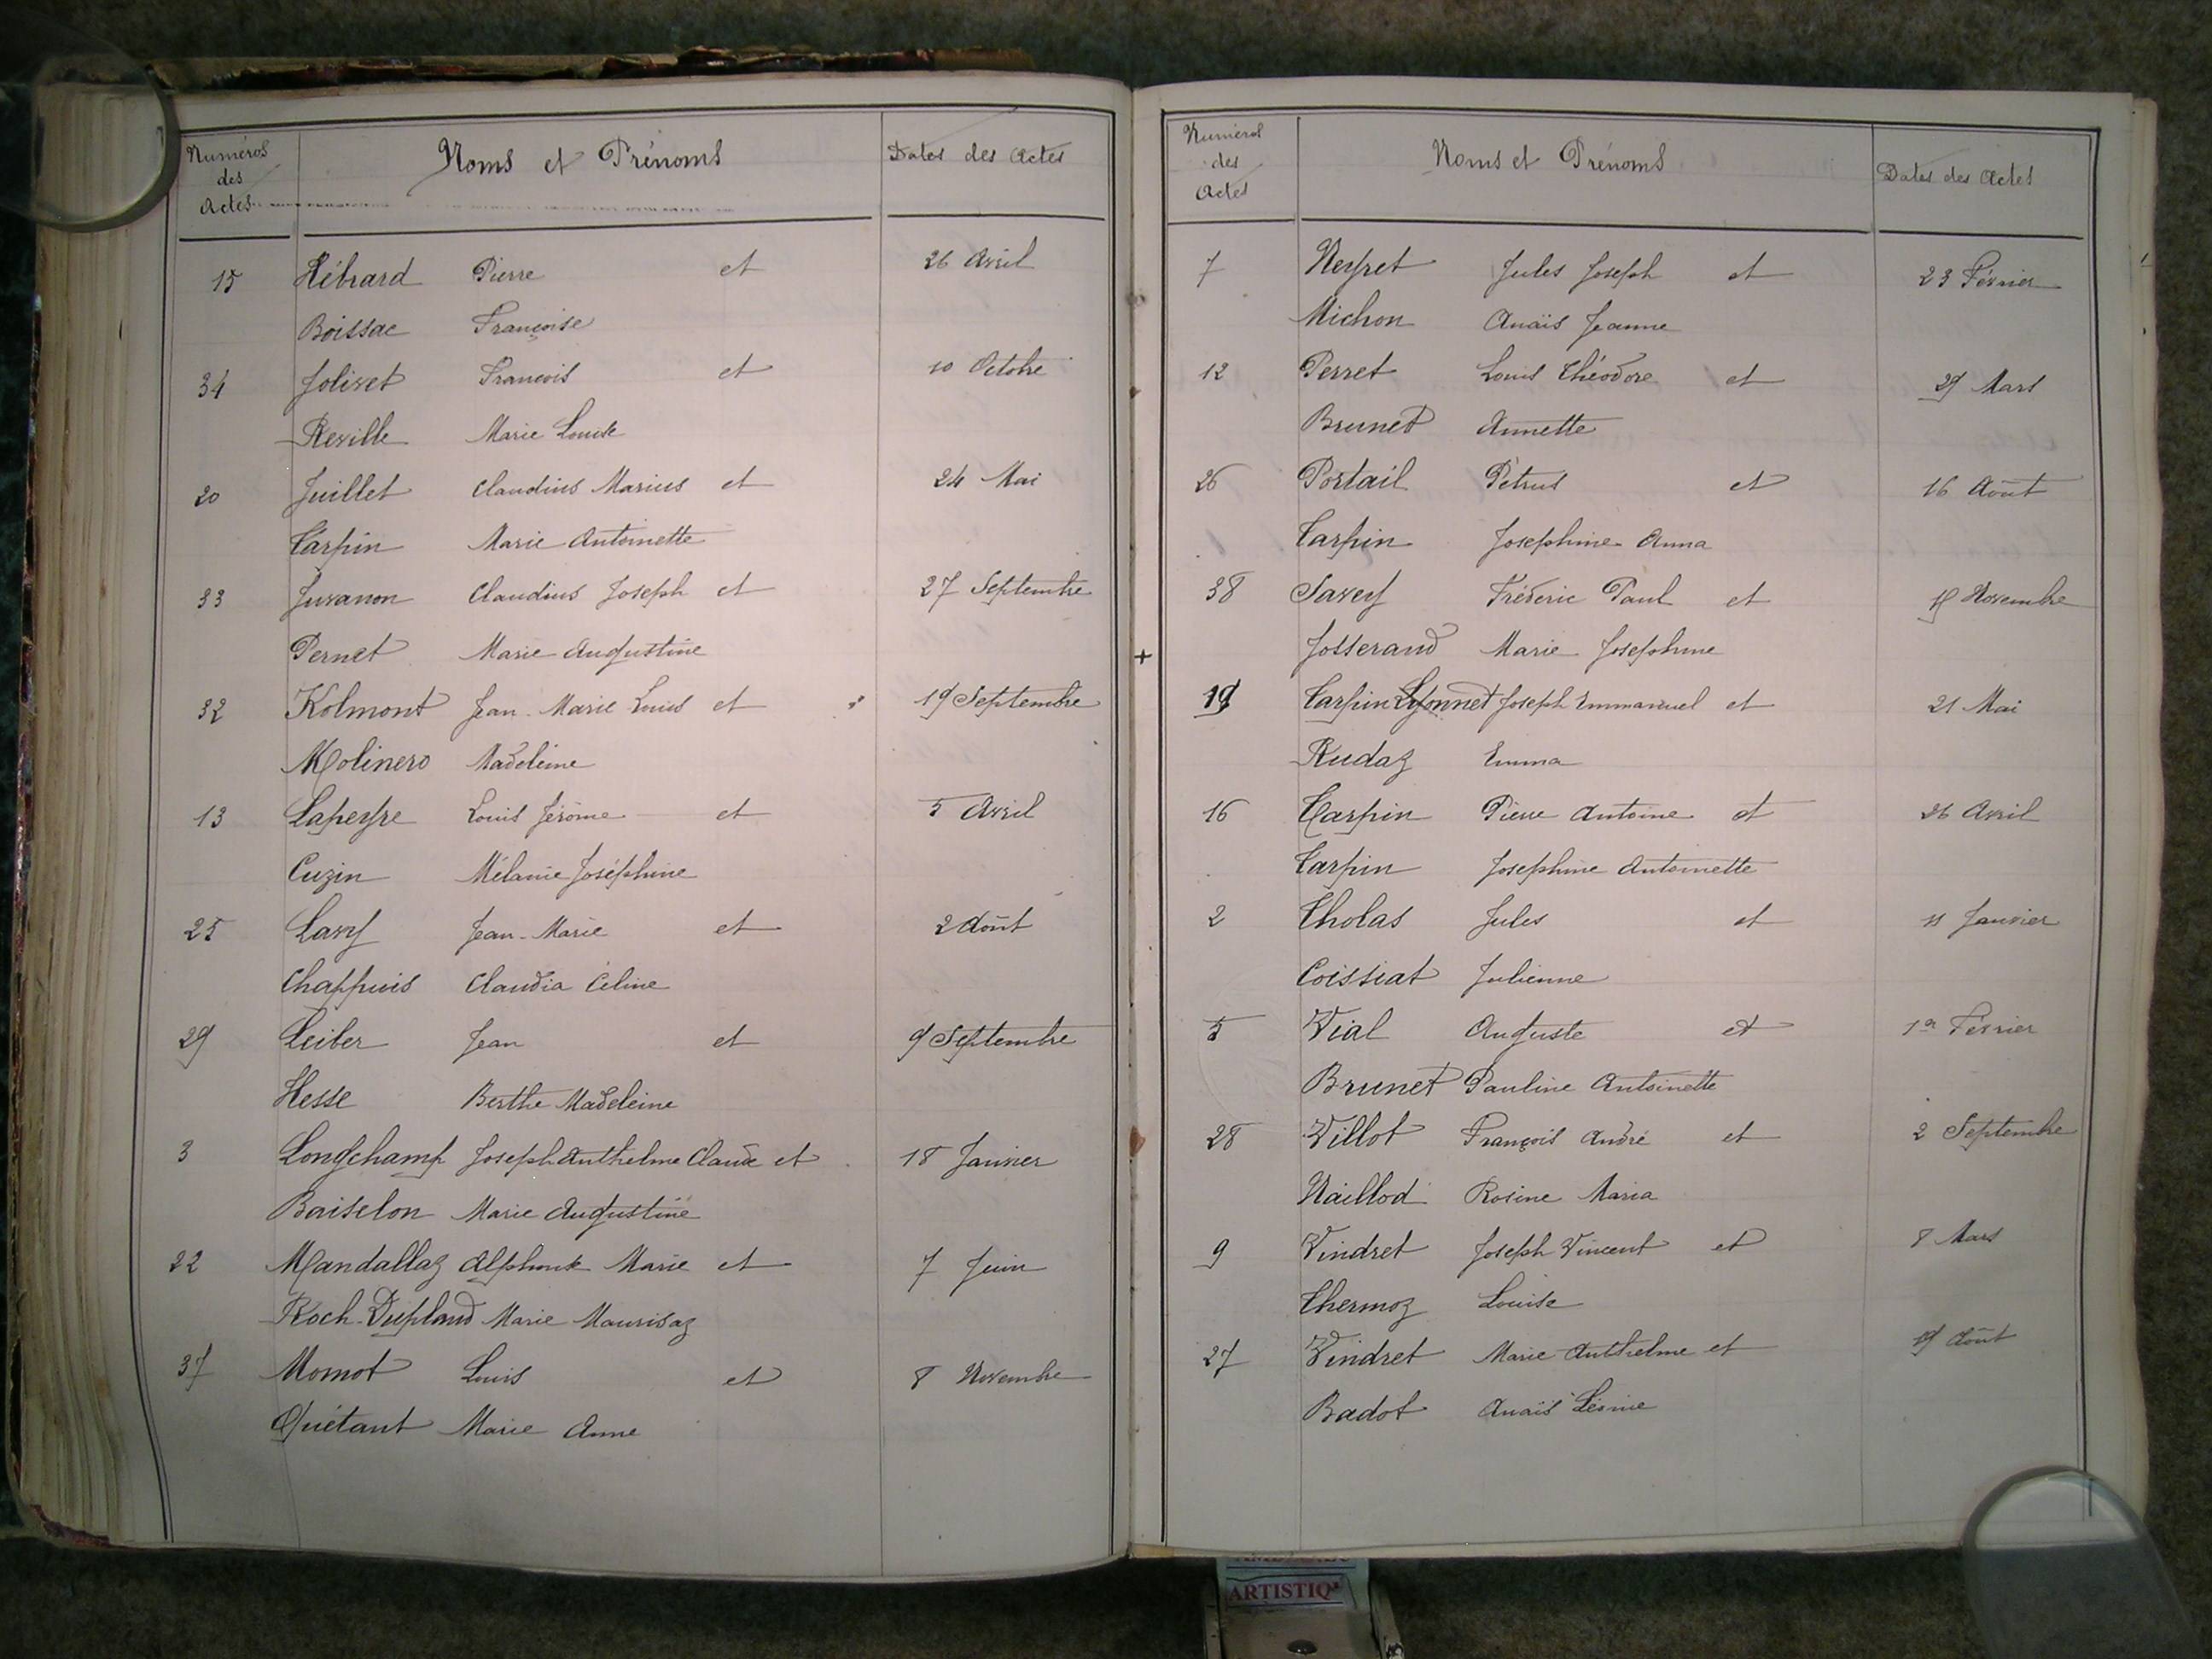 Numéros des Actes Noms et Prénoms Dates des Actes
15 Hébrard Pierre et 26 Avril
Boissac Françoise
34 Jolivet François et 10 Octobre
Reville Marie Louise
20 Juillet Claudius Marius et 24 Mai
Carpin Marie Antoinette
33 Juvanon Claudius Joseph et 27 Septembre
Pernet Marie Augustine
32 Kolmont Jean Marie Louis et 19 Septembre
Molinero Madeleine
13 Lapeyre Louis Jérôme et 5 Avril
Cuzin Mélanie Joséphine
25 Lavy Jean-Marie et 2 Août
Chappuis Claudia Céline
29 Leiber Jean et 9 Septembre
Hesse Berthe Madeleine
3 Longchamp Joseph Anthelme Claude et 18 Janvier
Baiselon Marie Augustine
22 Mandallaz Alphonse Marie et 7 Juin
Roch-Dupland Marie Mourisaz
37 Mornot Louis et 8 Novembre
Quétant Marie Anne
Numéros des Actes Noms et Prénoms Dates des Actes
7 Neyret Jules Joseph et 23 Février
Michon Anaïs Jeanne
12 Perret Louis Théodore et 29 Mars
Brunet Annette
26 Portail Pétrus et 16 Août
Carpin Josephine Anna
38 Savey Fréderic Paul et Novembre
Josserand Marie Josephine
19 Carpin Lyonnet Joseph Emmanuel et 21 Mai
Rudaz Emma
16 Carpin Pierre Antoine et 26 Avril
Carpin Josephine Antoinette
2 Tholas Jules et 11 Janvier
Coissiat Julienne
5 Vial Auguste et 1er Février
Brunet Pauline Antoinette
28 Villot François André et 2 Septembre
Naillod Rosine Maria
9 Vindret Joseph Vincent et 8 Mars
Thermoz Louise
27 Vindret Marie Anthelme et 19 Août
Badot Anaïs Lésine
ARTISTIQ